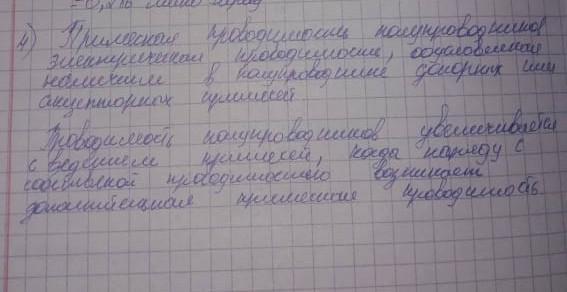 4) Примесная проводимость полупроводников
электрическая проводимость, обусловленная
наличием в полупроводнике донорных или
акцепторных примесей
Проводимость полупроводников увеличивается
с введением примесей, когда наряду с
собственной проводимостью возникает
дополнительная примесная проводимость